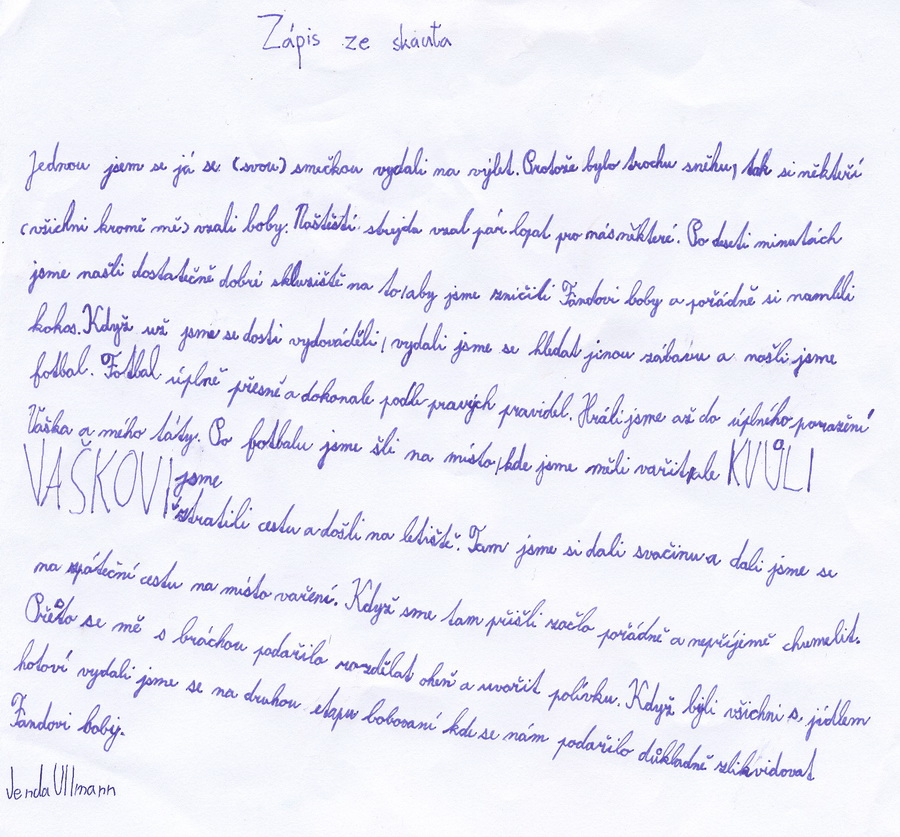 Zápis ze skauta
Jednou jsem se já se (svou) smečkou vydali na výlet. Protože bylo trochu sněhu, tak si někteří
(všichni kromě mě) vzali boby. Naštěstí strejda vzal pár lopat pro nás některé. Po deseti minutách
jsme našli dostatečně dobré skluziště na to, aby jsme zničili Fandovi boby a pořádně si namleli
kokos. Když už jsme se dosti vydováděli, vydali jsme se hledat jinou zábavu a našli jsme
fotbal. Fotbal úplně přesně a dokonale podle pravých pravidel. Hráli jsme až do úplného poražení
Vaška a mého táty. Po fotbalu jsme šli na místo, kde jsme měli vařit, ale KVŮLI
VAŠKOVI jsme
ztratili cestu a došli na letiště. Tam jsme si dali svačinu a dali jsme se
na zpáteční cestu na místo vaření. Když sme tam přišli začlo pořádně a nepříjemě chumelit.
Přesto se mě s bráchou podařilo rozdělat oheň a uvařit polívku. Když byli všichni s jídlem
hotoví vydali jsme se na druhou etapu bobovaní kde se nám podařilo důkladně zlikvidovat
Fandovi boby.
Jenda Ullmann